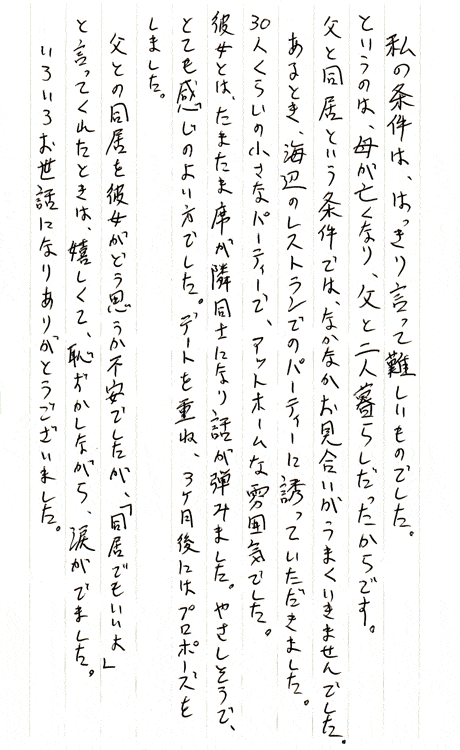 私の条件は、はっきり言って難しいものでした。
というのは、母が亡くなり、父と二人暮らしだったからです。
父と同居という条件では、なかなかお見合いがうまくいきませんでした。
あるとき、海辺のレストランでのパーティーに誘っていただきました。
30人くらいの小さなパーティーで、アットホームな雰囲気でした。
彼女とは、たまたま席が隣同士になり話が弾みました。やさしそうで、
とても感じのよい方でした。デートを重ね、3ヶ月後にはプロポーズを
しました。
父との同居を彼女がどう思うか不安でしたが、「同居でもいいよ」
と言ってくれたときは、嬉しくて、恥ずかしながら、涙がでました。
いろいろお世話になりありがとうございました。